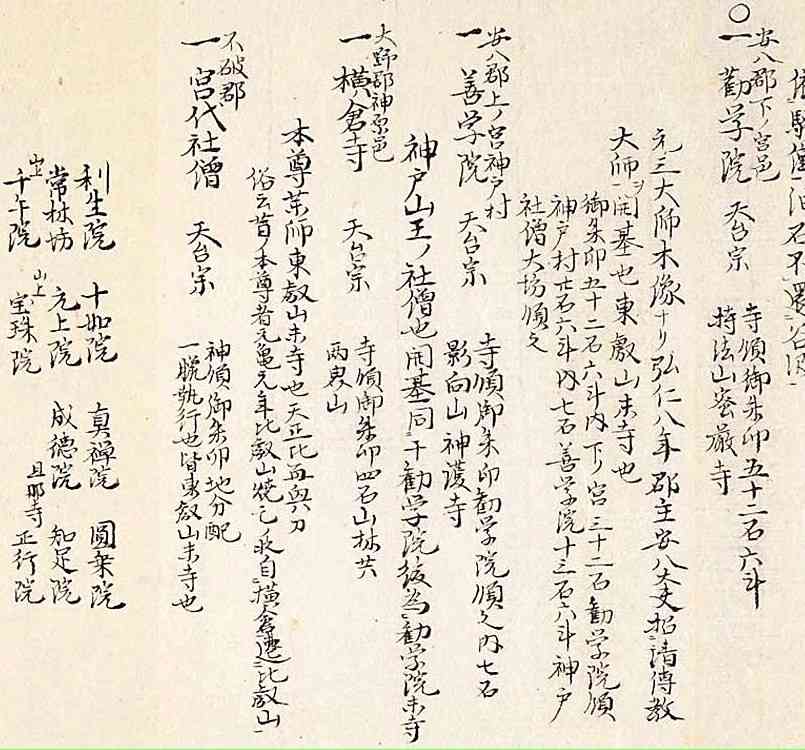 ○
安八郡下ノ宮邑
一 勸学院 天台宗
寺領御朱印五十二石六斗
持法山密嚴寺
元三大師木像ナリ弘仁八年郡主安八大夫招請傳教
大師ヲ開基也東叡山末寺也
御朱印五十二石六斗内下ノ宮三十二石勸学院領
神戸村廿石六斗内七石善学院十三石六斗神戸
社僧大坊領之
安八郡上ノ宮神戸村
一 善学院 天台宗
寺領御朱印勸学院領之内七石
影向山神護寺
神戸山王ノ社僧也開基同于勸学院故為勸学院末寺
大野郡神原邑
一 横倉寺 天台宗
寺領御朱印四石山林共
両界山
本尊薬師東叡山末寺也天正比再興乃
俗云昔ノ本尊者元亀元年比叡山焼亡后自横倉遷比叡山
不破郡
一 宮代社僧 天台宗
神領御朱印地分配
一臈執行也皆東叡山末寺也
利生院 十如院 真禅院 圓乗院
常林坊 元上院 成徳院 知足院
山上 千午院 山上 宝珠院 旦那寺 正行院